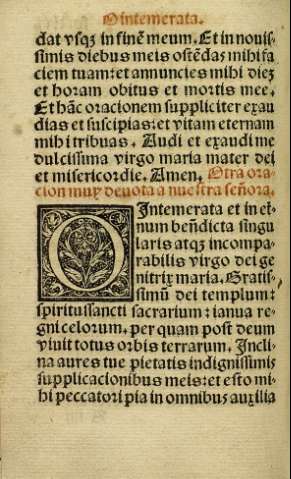 O intemerata.
dat vsqʒ in finē meum. Et in nouis-
simis diebus meis ostēdas mihi fa
ciem tuam: et annuncies mihi diē
et horam obitus et mortis mee.
Et hāc oracionem suppliciter exau
dias et suscipias: et vitam eternam
mihi tribuas. Audi et exaudi me
dulcissima virgo maria mater dei
et misericordie. Amen. Otra ora-
cion muy deuota a nuestra señora.
O Intemerata et in eter
num bendicta singu
laris atqʒ incompa-
rabilis virgo dei ge
nitrix maria. Gratis-
simū dei templum:
spiritussancti sacrarium: ianua re
gni celorum. per quam post deum
viuit totus orbis terrarum. Incli-
na aures tue pietatis indignissimis
supplicacionibus meis: et esto mi-
hi peccatori pia in omnibus auxilia